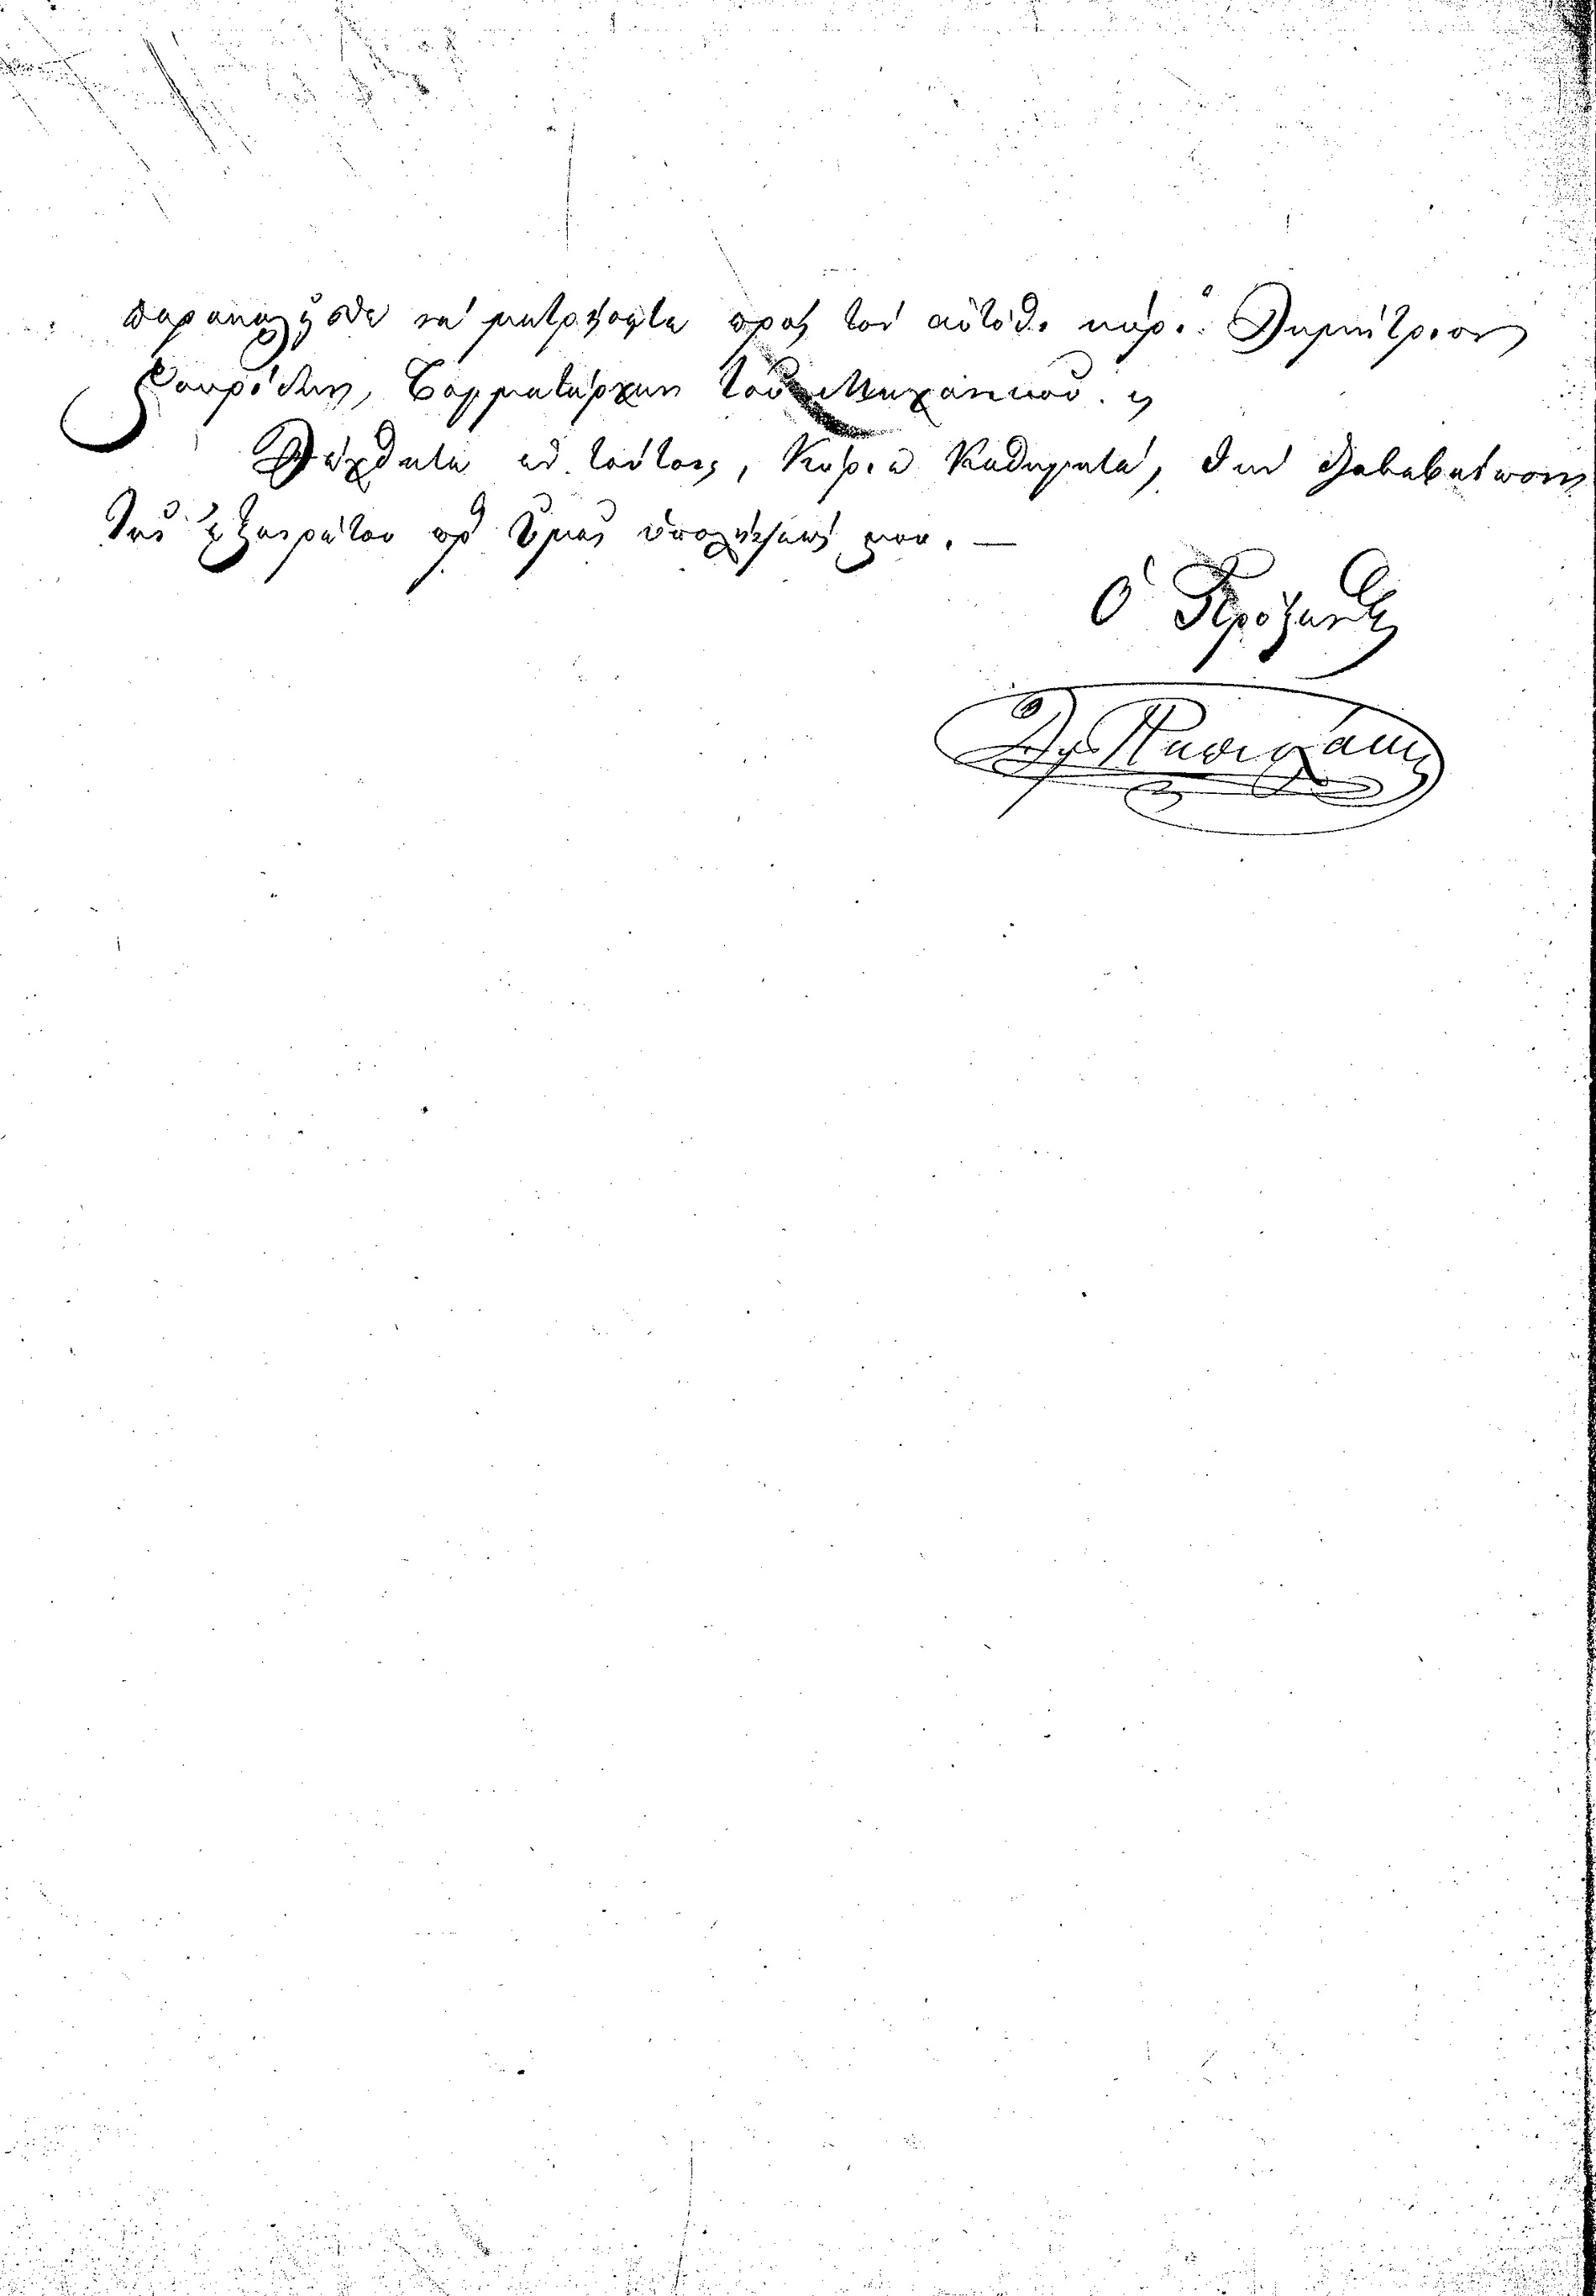 παρακαλεῖσθε νὰ μετρήσητε πρὸς τὸν αὐτόθι κύρ. Δημήτριον
Σκουρίδην, Ταγματάρχην τοῦ Μηχανικοῦ.
Δέχθητε ἐν τούτοις, Κύριε Καθηγητά, τὴν διαβεβαίωσιν
τῆς ἐξαιρέτου πρὸς Ὑμᾶς ὑπολήψεώς μου. —
Ὁ Πρόξενος